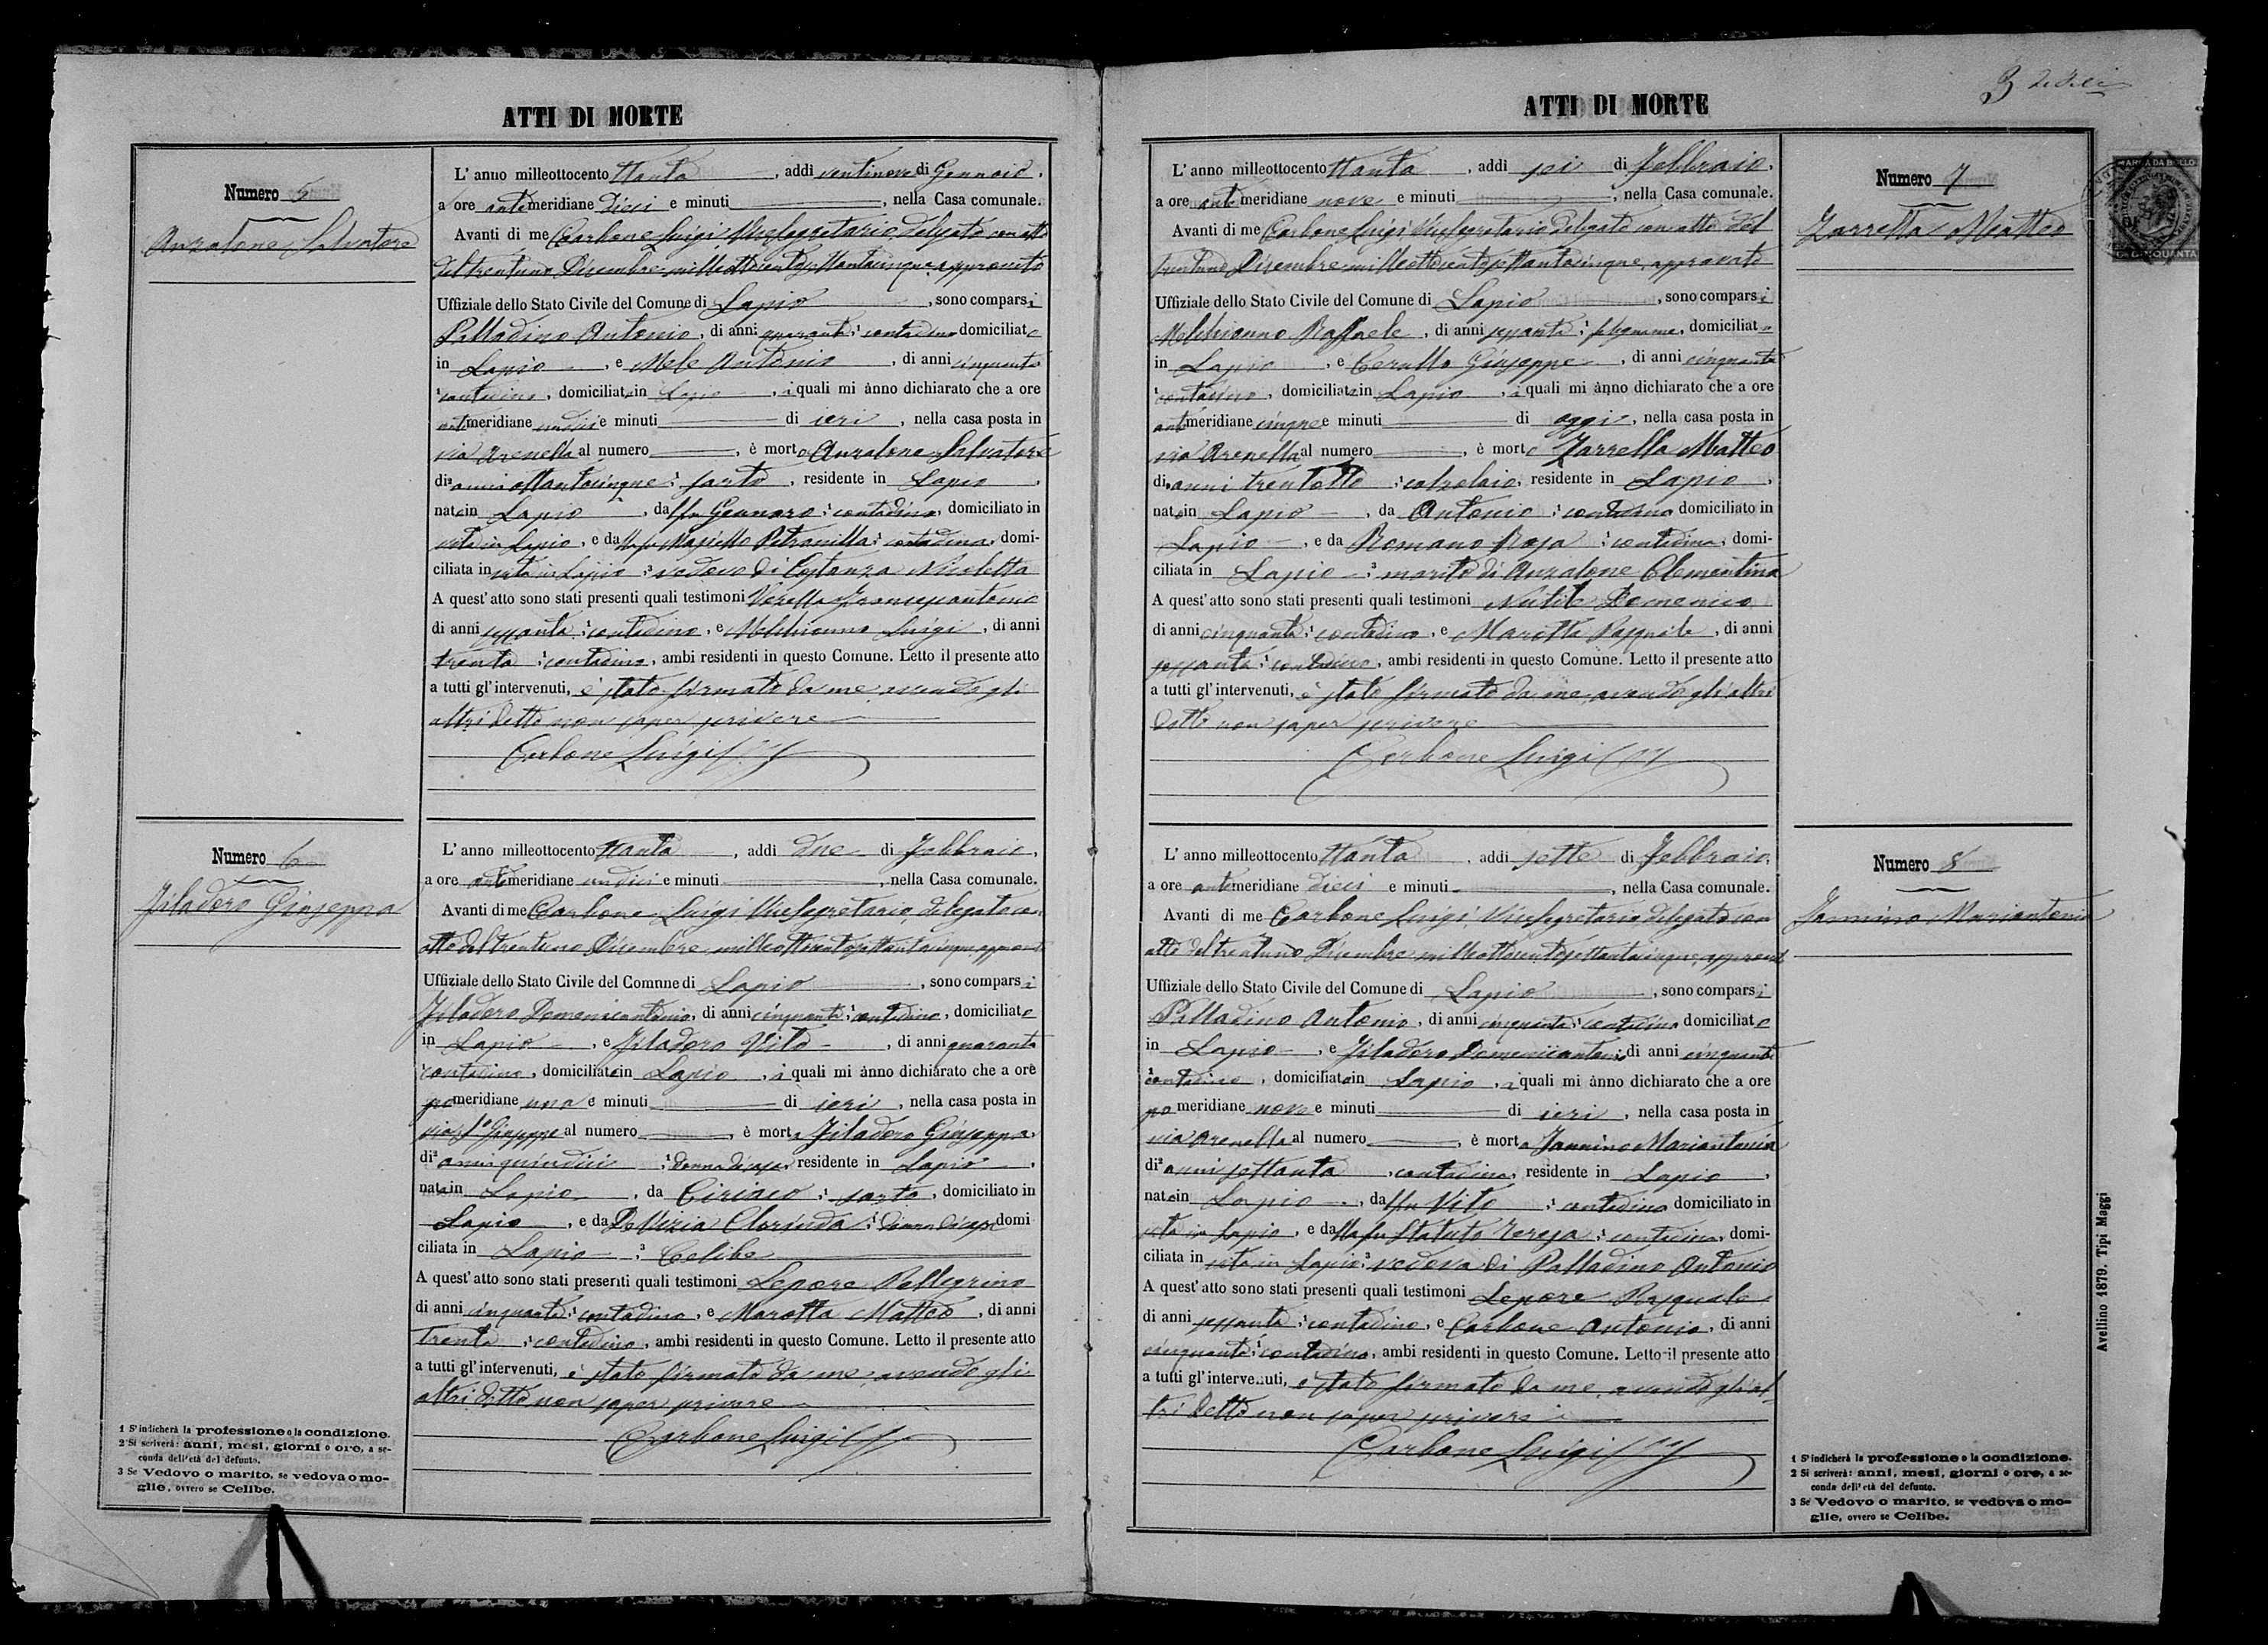 ATTI DI MORTE
Numero 5
Anzalone Salvatore
L'anno milleottocentottanta, addì ventinove di Gennaio,
a ore antimeridiane dieci e minuti, nella Casa comunale.
Avanti di me Carbone Luigi Vicesegretario, delegato con atto
del trentuno Dicembre milleottocentosettantacinque, approvato
Uffiziale dello Stato Civile del Comune di Lapio, sono comparsi
Palladino Antonio, di anni quaranta, contadino domiciliato
in Lapio, e Mele Antonio, di anni cinquanta
contadino, domiciliato in Lapio, i quali mi ànno dichiarato che a ore
antimeridiane undici e minuti di ieri, nella casa posta in
via Arenella al numero, è morto Anzalone Salvatore
di anni ottantacinque, sarto, residente in Lapio,
nato in Lapio, da fu Gennaro, contadino, domiciliato in
vita in Lapio, e da Petronilla, contadina, domi-
ciliata in vita in Lapio, vedovo di Costanza Nicoletta
A quest'atto sono stati presenti quali testimoni Francescantonio
di anni sessanta, contadino, e Melchionno Luigi, di anni
trenta, contadino, ambi residenti in questo Comune. Letto il presente atto
a tutti gl'intervenuti, è stato firmato da me avendo gli
altri detto non saper scrivere
Carbone Luigi
Numero 6
Filadoro Giuseppa
L'anno milleottocentottanta, addì due di Febbraio,
a ore antimeridiane undici e minuti, nella Casa comunale.
Avanti di me Carbone Luigi Vicesegretario, delegato con
atto del trentuno Dicembre milleottocentosettantacinque, approvato
Uffiziale dello Stato Civile del Comune di Lapio, sono comparsi
Filadoro Domenicantonio, di anni cinquanta, contadino, domiciliato
in Lapio, e Filadoro Vito, di anni quaranta
contadino, domiciliato in Lapio, i quali mi ànno dichiarato che a ore
pomeridiane una e minuti di ieri, nella casa posta in
via S. Giuseppe al numero, è morta Filadoro Giuseppa,
di anni quindici, donna di casa, residente in Lapio,
nata in Lapio, da Ciriaco, sarto, domiciliato in
Lapio, e da De Vizia Clorinda, donna di casa domi-
ciliata in Lapio, Celibe
A quest'atto sono stati presenti quali testimoni Lepore Pellegrino
di anni cinquanta, contadino, e Marotta Matteo, di anni
trenta, contadino, ambi residenti in questo Comune. Letto il presente atto
a tutti gl'intervenuti, è stato firmato da me, avendo gli
altri detto non saper scrivere
Carbone Luigi
1 S'indicherà la professione o la condizione.
2 Si scriverà: anni, mesi, giorni o ore, a se-
conda dell'età del defunto.
3 Se Vedovo o marito, se vedova o mo-
glie, ovvero se Celibe.
ATTI DI MORTE
3
MARCA DA BOLLO
CINQUANTA
Numero 7
Zarrella Matteo
L'anno milleottocentottanta, addì sei di Febbraio,
a ore antimeridiane nove e minuti, nella Casa comunale.
Avanti di me Carbone Luigi Vicesegretario delegato con atto del
trentuno Dicembre milleottocentosettantacinque, approvato
Uffiziale dello Stato Civile del Comune di Lapio, sono comparsi
Melchionno Raffaele, di anni sessanta, falegname, domiciliato
in Lapio, e Cerullo Giuseppe, di anni cinquanta
contadino, domiciliato in Lapio, i quali mi ànno dichiarato che a ore
antimeridiane cinque e minuti di oggi, nella casa posta in
via Arenella al numero, è morto Zarrella Matteo
di anni trentotto, calzolaio, residente in Lapio,
nato in Lapio, da Antonio, contadino domiciliato in
Lapio, e da Romano Rosa, contadina, domi-
ciliata in Lapio, marito di Anzalone Clementina
A quest'atto sono stati presenti quali testimoni Domenico
di anni cinquanta, contadino, e Marotta Pasquale, di anni
sessanta, contadino, ambi residenti in questo Comune. Letto il presente atto
a tutti gl'intervenuti, è stato firmato da me, avendo gli altri
detto non saper scrivere
Carbone Luigi
Numero 8
Jannino Mariantonia
L'anno milleottocentottanta, addì sette di Febbraio,
a ore antimeridiane dieci e minuti, nella Casa comunale.
Avanti di me Carbone Luigi Vicesegretario, delegato con
atto del trentuno Dicembre milleottocentosettantacinque, approvato
Uffiziale dello Stato Civile del Comune di Lapio, sono comparsi
Palladino Antonio, di anni cinquanta, contadino domiciliato
in Lapio, e Filadoro Domenicantonio, di anni cinquanta
contadino, domiciliato in Lapio, i quali mi ànno dichiarato che a ore
pomeridiane nove e minuti di ieri, nella casa posta in
via Arenella al numero, è morta Jannino Mariantonia
di anni settanta, contadina, residente in Lapio,
nata in Lapio, da fu Vito, contadino domiciliato in
vita in Lapio, e da fu Statuto Teresa, contadina, domi-
ciliata in vita in Lapio, vedova di Palladino Antonio
A quest'atto sono stati presenti quali testimoni Lepore Pasquale
di anni sessanta, contadino, e Carbone Antonio, di anni
cinquanta, contadino, ambi residenti in questo Comune. Letto il presente atto
a tutti gl'intervenuti, è stato firmato da me, avendo gli al-
tri detto non saper scrivere
Carbone Luigi
1 S'indicherà la professione o la condizione.
2 Si scriverà: anni, mesi, giorni o ore, a se-
conda dell'età del defunto.
3 Se Vedovo o marito, se vedova o mo-
glie, ovvero se Celibe.
Avellino 1879. Tipi Maggi